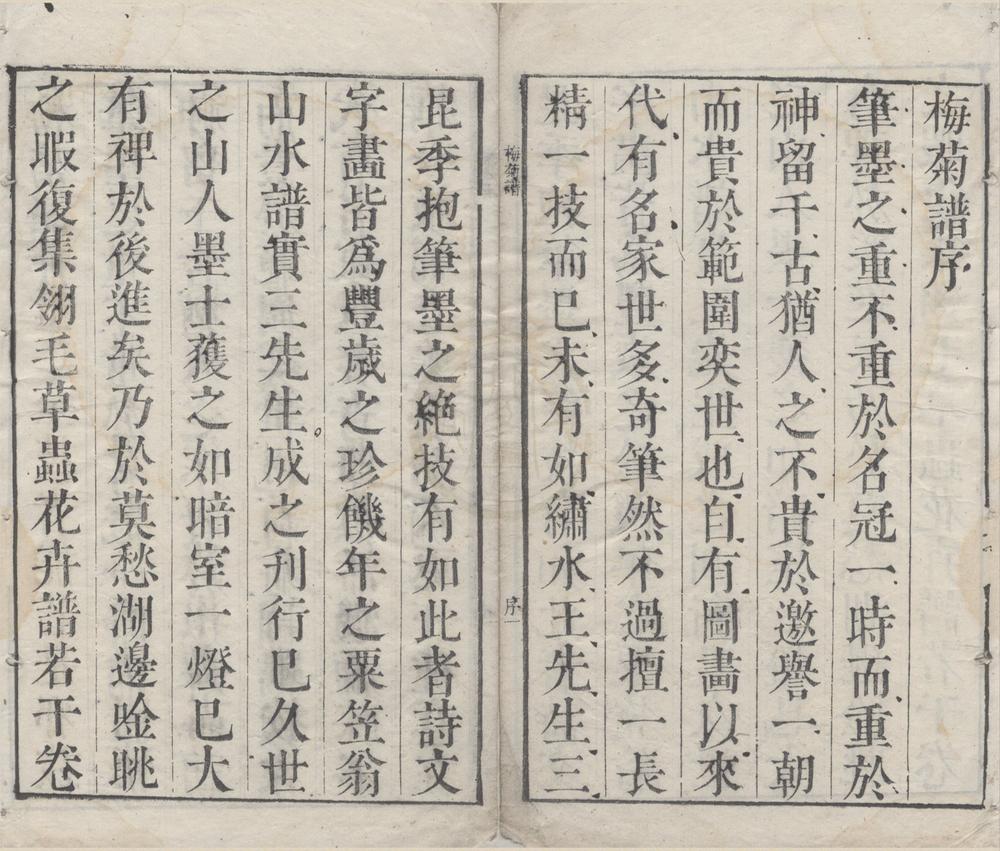 梅菊譜序
筆墨之重不重於名冠一時而重於
神留千古猶人之不貴於邀譽一朝
而貴於範圍奕世也自有圖畫以來
代有名家世多奇筆然不過擅一長
精一技而已未有如繡水王先生三
梅菊譜
序一
昆季抱筆墨之絶技有如此者詩文
字畫皆爲豐歲之珍饑年之粟笠翁
山水譜實三先生成之刋行巳久世
之山人墨士獲之如暗室一燈巳大
有裨於後進矣乃於莫愁湖邊唫眺
之暇復集翎毛草蟲花卉譜若干卷